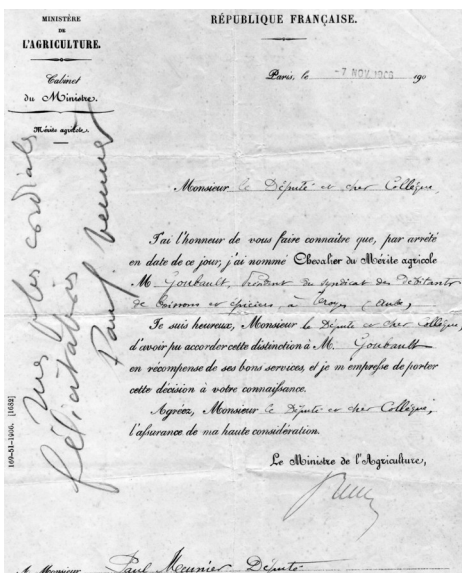 MINISTÈRE
DE
L'AGRICULTURE.
Cabinet
du Ministre.
Mérite agricole.
RÉPUBLIQUE FRANÇAISE.
Paris, le -7 NOV 1906 190
Monsieur le Député et cher Collègue,
J'ai l'honneur de vous faire connaître que, par arrêté
en date de ce jour, j'ai nommé Chevalier du Mérite agricole
M. Goubault, Président du Syndicat des débitants
de boissons et épiciers à Troyes (Aube)
Je suis heureux, Monsieur le Député et cher Collègue,
d'avoir pu accorder cette distinction à M. Goubault
en récompense de ses bons services, et je m'empresse de porter
cette décision à votre connaissance.
Agréez, Monsieur le Député et cher Collègue,
l'assurance de ma haute considération.
Le Ministre de l'Agriculture,
A Monsieur Paul Meunier Député
Mes plus cordiales
félicitations
Paul Meunier
169-51-1906. [1652]